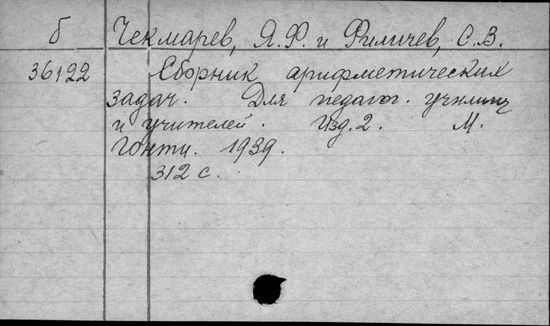 б Чекмарев, Я.Ф. и Филичев, С.В.
36122 Сборник арифметических
задач. Для педагог. училищ
и учителей. Изд. 2. М.
Гонти. 1939.
312 с.